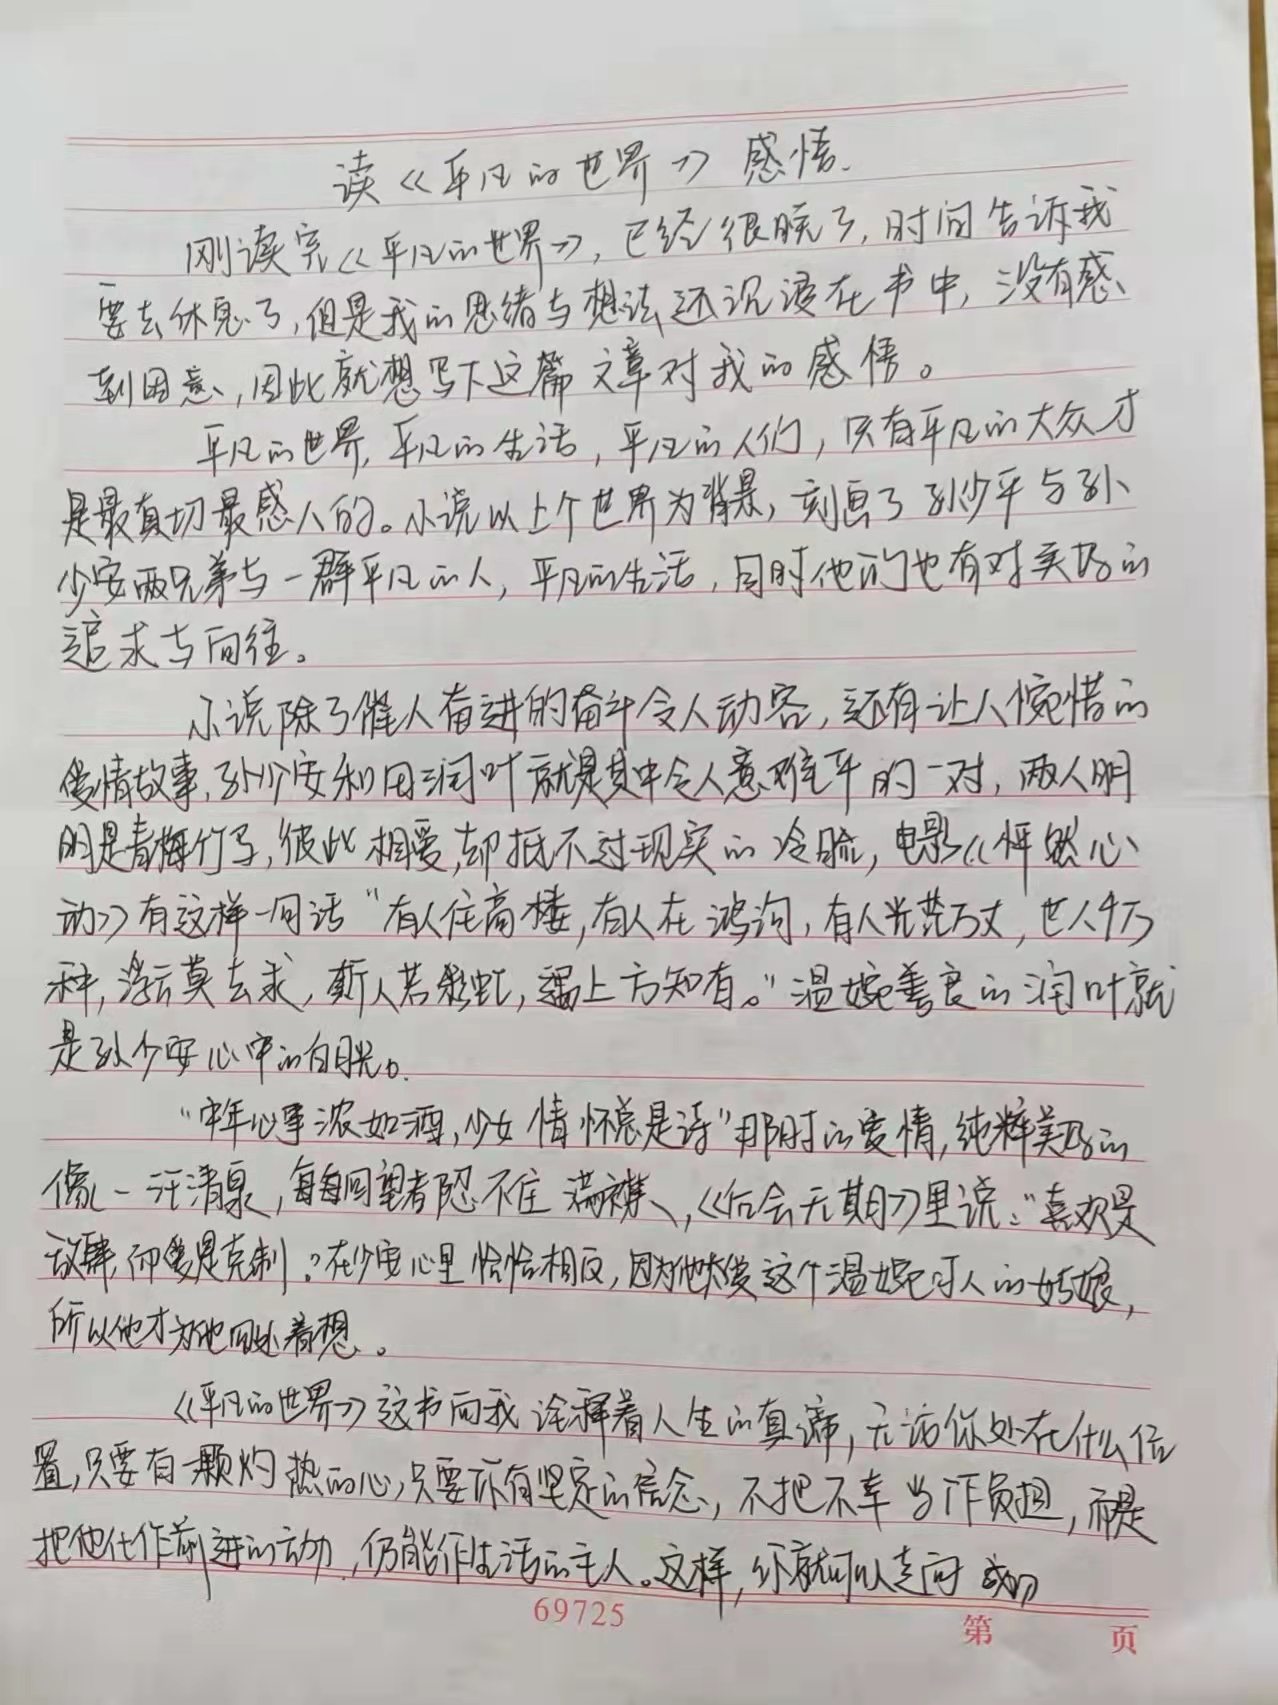 读《平凡的世界》感悟.
刚读完《平凡的世界》,已经很晚了,时间告诉我
要去休息了,但是我的思绪与想法还沉浸在书中,没有感
到困意,因此就想写下这篇文章对我的感悟。
平凡的世界,平凡的生活,平凡的人们,只有平凡的大众才
是最真切最感人的。小说以上个世界为背景,刻画了孙少平与孙
少安两兄弟与一群平凡的人,平凡的生活,同时他们也有对美好的
追求与向往。
小说除了催人奋进的奋斗令人动容,还有让人惋惜的
爱情故事,孙少安和田润叶就是其中令人意难平的一对,两人明
明是青梅竹马,彼此相爱,却抵不过现实的冷脸,电影《怦然心
动》有这样一句话"有人住高楼,有人在鸿沟,有人光芒万丈,世人千万
种,浮云莫去求,斯人若彩虹,遇上方知有。"温婉善良的润叶就
是孙少安心中的白月光。
"中年心事浓如酒,少女情怀总是诗"那时的爱情,纯粹美好的
像一汪清泉,每每回望者忍不住满襟,《后会无期》里说:"喜欢是
放肆,而爱是克制。"在少安心里恰恰相反,因为他太爱这个温婉可人的姑娘,
所以他才为她回处着想。
《平凡的世界》这书向我诠释着人生的真谛,无论你处在什么位
置,只要有一颗灼热的心,只要你有坚定的信念,不把不幸当作负担,而是
把他化作前进的动力,仍能作生活的主人。这样,你就可以走向成功
69725
第 页